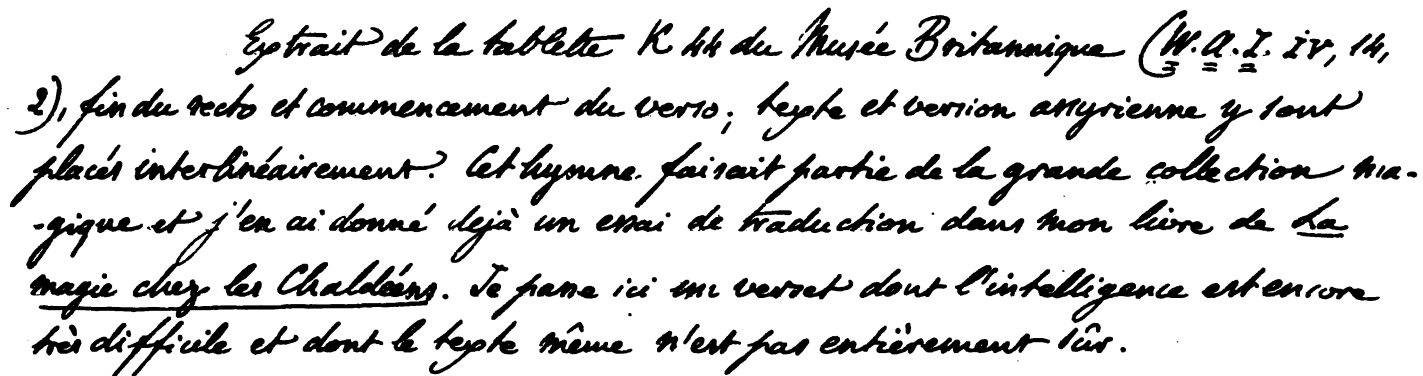 Extrait de la tablette K 44 du Musée Britannique (W.A.I. IV, 14,
2), fin du recto et commencement du verso; texte et version assyrienne y sont
placés interlinéairement. Cet hymne faisait partie de la grande collection ma-
-gique et j'en ai donné dejà un essai de traduction dans mon livre de La
magie chez les Chaldéens. Je passe ici un verset dont l'intelligence est encore
très difficile et dont le texte même n'est pas entièrement sûr.